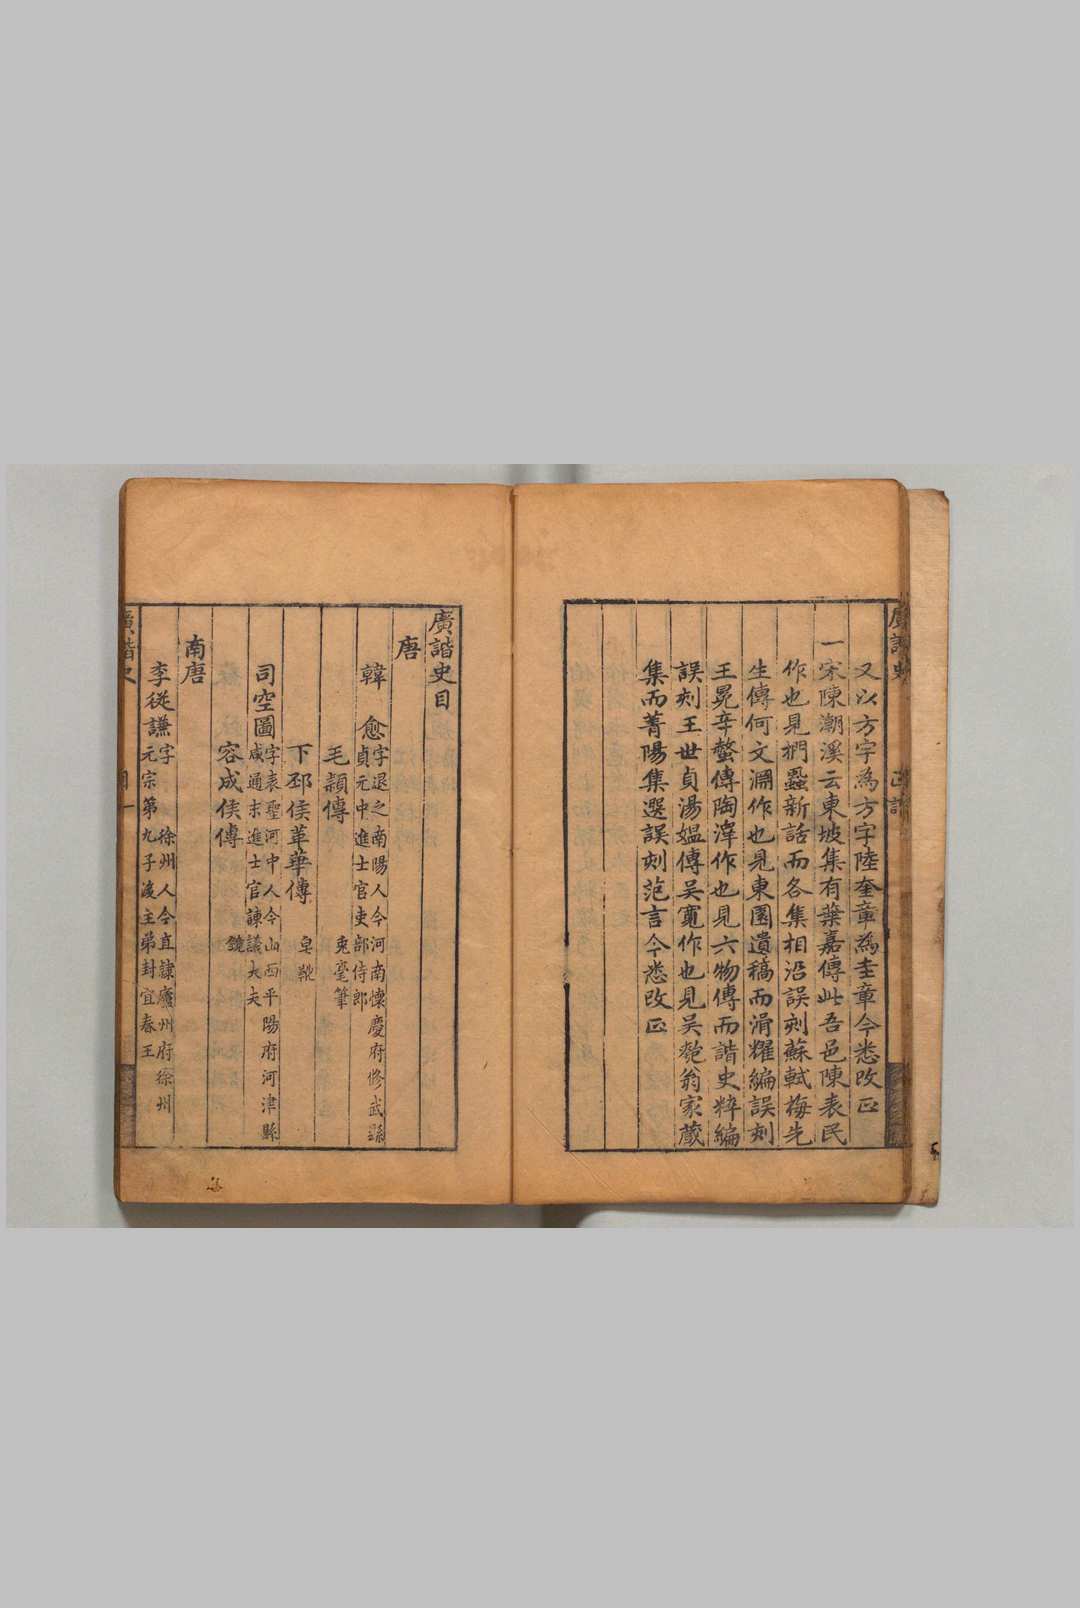 廣諧史
又以方字為方字陸奎章為圭章今悉改正
一宋陳潮溪云東坡集有葉嘉傳此吾邑陳表民
作也見捫蝨新話而各集相沿誤刻蘇軾梅先
生傳何文淵作也見東園遺稿而涓耀編誤刻
王冕辛螯傳陶澤作也見六物傳而諧史粹編
誤刻王世貞湯媼傳吳寬作也見吳匏翁家藏
集而菁陽集選誤刻范言今悉改正
廣諧史目
唐
韓愈字退之南陽人今河南懷慶府修武縣
貞元中進士官吏部侍郎
毛穎傳 兎毫筆
下邳侯革華傳 皂靴
司空圖字表聖河中人今山西平陽府河津縣
咸通末進士官諫議大夫
容成侯傳 鏡
南唐
李從謙字 徐州人今直隸廬州府徐州
元宗第九子後主弟封宜春王
廣諧史 目 一